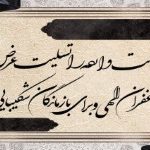 وارده را تسلیت عرض
غفران الهی و برای بازماندگان شکیبایی